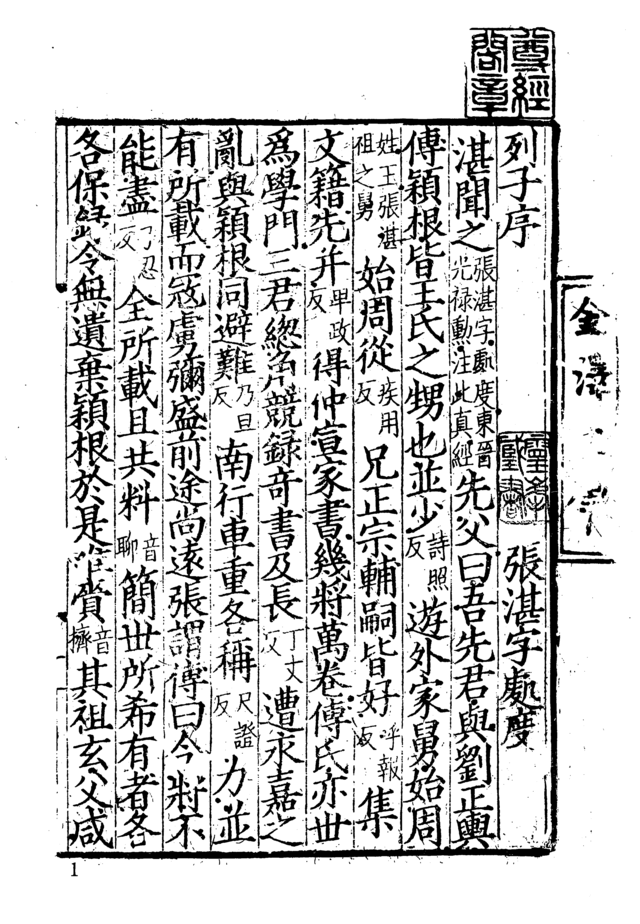 尊經
閣章
列子序 張湛字處度
湛聞之張湛字處度東晉光禄勳注此真經先父曰吾先君與劉正輿
傅穎根皆王氏之甥也並少詩照反遊外家舅始周
姓王張湛祖之舅始周從疾用反兄正宗輔嗣皆好呼報反集
文籍先并卑政反得仲宣家書幾將萬卷傅氏亦世
爲學門三君總角競録奇書及長丁丈反遭永嘉之
亂與穎根同避難乃旦反南行車重各稱尺證反力並
有所載而寇虜彌盛前途尚遠張謂傅曰今將不
能盡忍反全所載且共料音聊簡世所希有者各
各保録令無遺棄穎根於是唯賫音擠其祖玄父咸
金澤
1